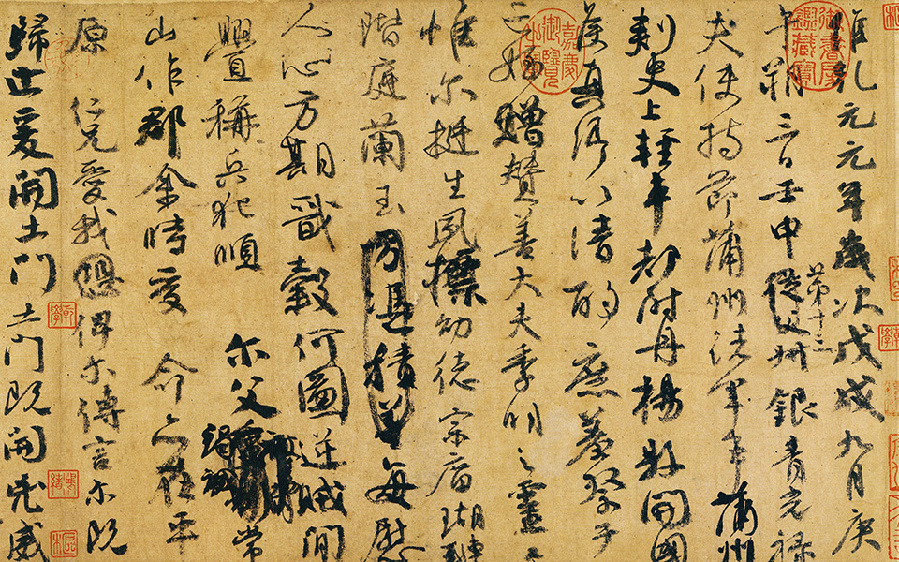 維乾元元年歲次戊戌九月庚
午朔三日壬申第十三從父叔銀青光祿
夫使持節蒲州諸軍事蒲州
刺史上輕車都尉丹楊縣開國
侯真卿以清酌庶羞祭于
亡姪贈贊善大夫季明之靈曰
惟爾挺生夙標幼德宗廟瑚璉
階庭蘭玉方憑積善每慰
人心方期戩穀何圖逆賊閒
釁稱兵犯順 爾父竭誠常
山作郡余時受命亦在平
原 仁兄愛我恐俾爾傳言爾既
歸止爰開土門土門既開凶威
御書房鑑藏寶
嘉慶御覽之寶